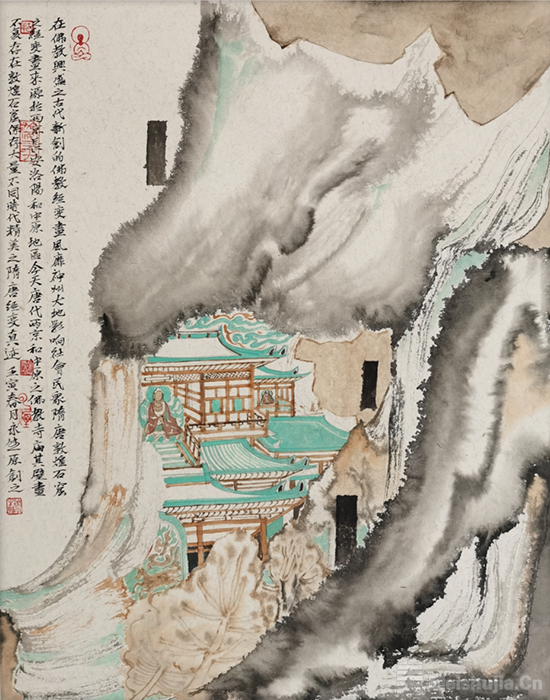 在佛教興盛之古代新創的佛教經變畫風靡神州大地影响社會民衆隋唐敦煌石窟
之經變畫來源於西京長安洛陽和中原地區今天唐代两京和中原之佛教寺庙其壁畫
不复存在敦煌石窟保存大量不同時代精美之隋唐經變真迹壬寅春月永生原創之